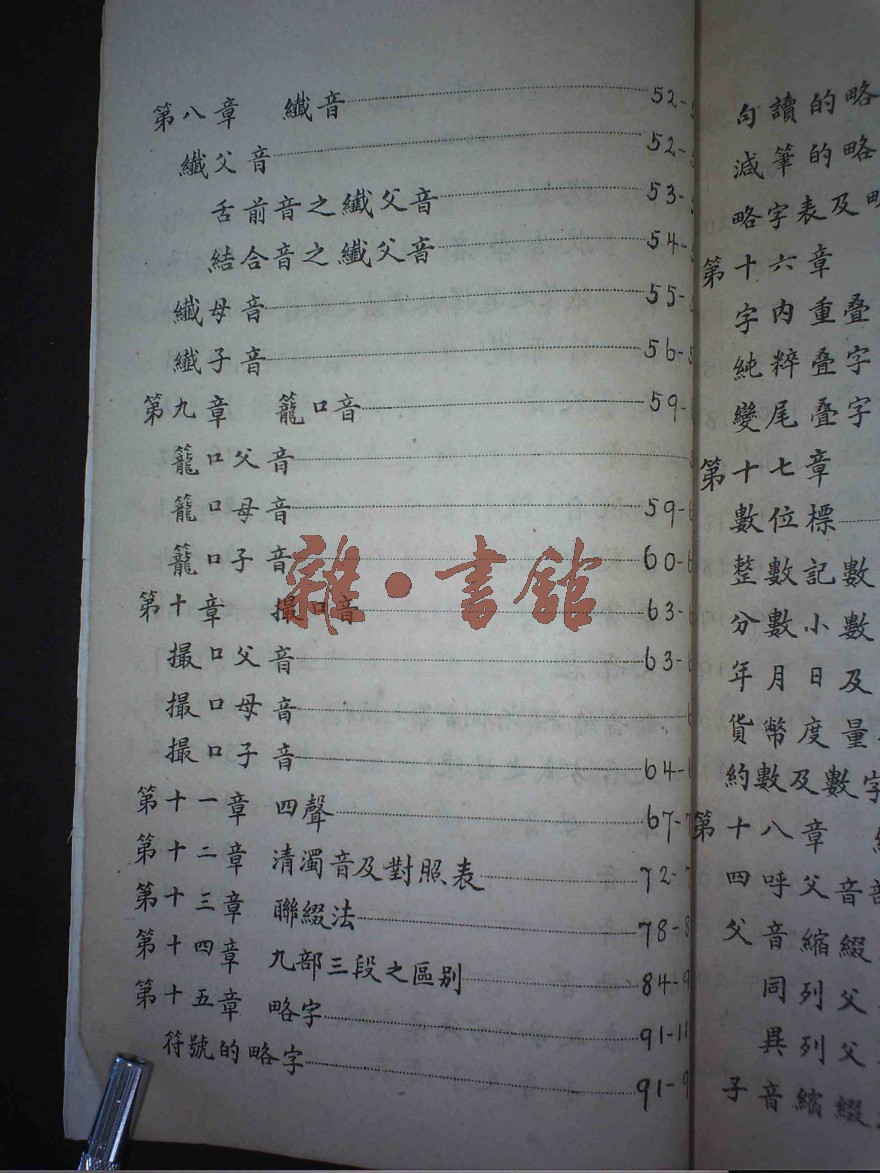 第八章 纖音 52-
纖父音 52-
舌前音之纖父音 53-
結合音之纖父音 54-
纖母音 55-
纖子音 56-
第九章 籠口音 59-
籠口父音
籠口母音 59-
籠口子音 60-
第十章 撮口音 63-
撮口父音 63-
撮口母音
撮口子音 64-
第十一章 四聲 67-
第十二章 清濁音及對照表 72-
第十三章 聯綴法 78-
第十四章 九部三段之區别 84-
第十五章 略字 91-11
符號的略字 91-9
句讀的略
減筆的略
略字表及
第十六章
字内重叠
純粹叠字
變尾叠字
第十七章
數位標
整數記數
分數小數
年月日及
貨幣度量
約數及數字
第十八章
四呼父音
父音縮綴
同列父
異列父
子音縮綴
雜·書館